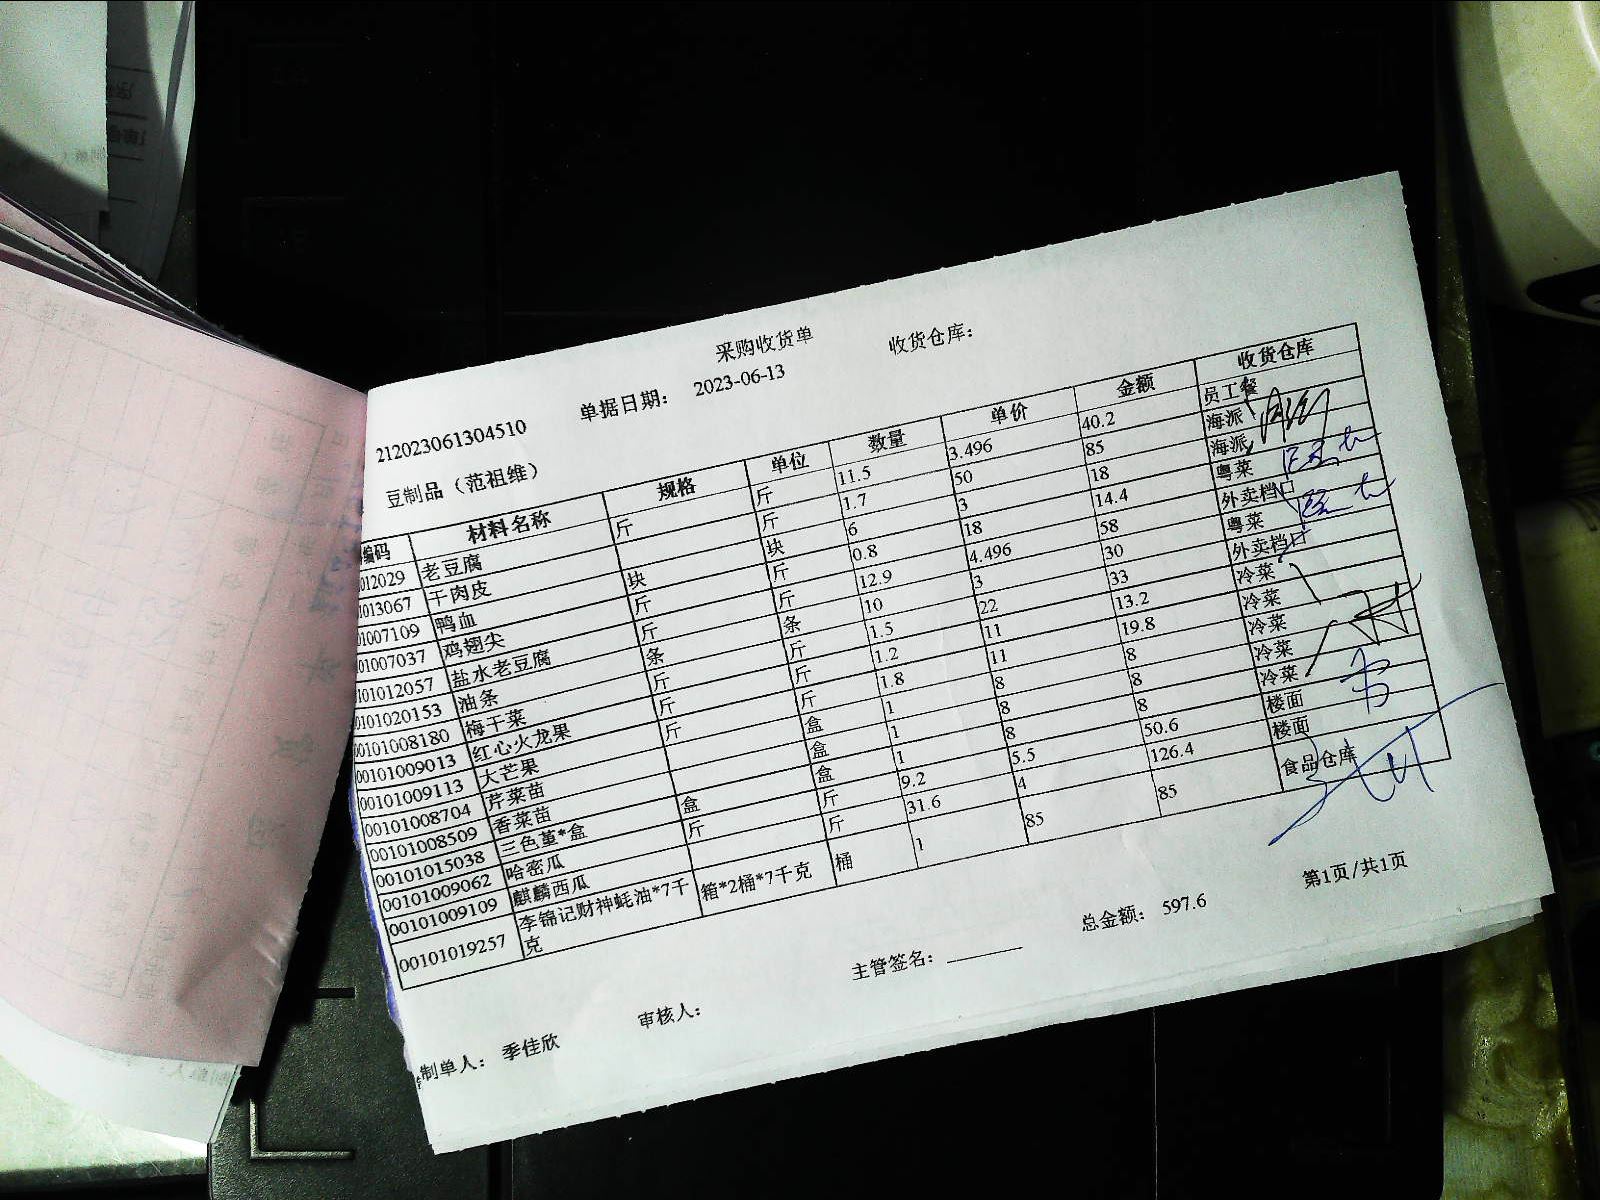 采购收货单 收货仓库：
212023061304510 单据日期： 2023-06-13
豆制品（范祖维）
编码 材料名称 规格 单位 数量 单价 金额 收货仓库
012029 老豆腐 斤 斤 11.5 3.496 40.2 员工餐
1013067 干肉皮 斤 1.7 50 85 海派
01007109 鸭血 块 块 6 3 18 海派
01007037 鸡翅尖 斤 斤 0.8 18 14.4 粤菜
101012057 盐水老豆腐 斤 斤 12.9 4.496 58 外卖档口
0101020153 油条 条 条 10 3 30 粤菜
00101008180 梅干菜 斤 斤 1.5 22 33 外卖档
00101009013 红心火龙果 斤 斤 1.2 11 13.2 冷菜
00101009113 大芒果 斤 斤 1.8 11 19.8 冷菜
00101008704 芹菜苗 盒 1 8 8 冷菜
00101008509 香菜苗 盒 1 8 8 冷菜
00101015038 三色堇*盒 盒 盒 1 8 8 冷菜
00101009062 哈密瓜 斤 斤 9.2 5.5 50.6 楼面
00101009109 麒麟西瓜 斤 31.6 4 126.4 楼面
00101019257 李锦记财神蚝油*7千克 箱*2桶*7千克 桶 1 85 85 食品仓库
主管签名： 总金额： 597.6 第1页/共1页
制单人： 季佳欣 审核人：